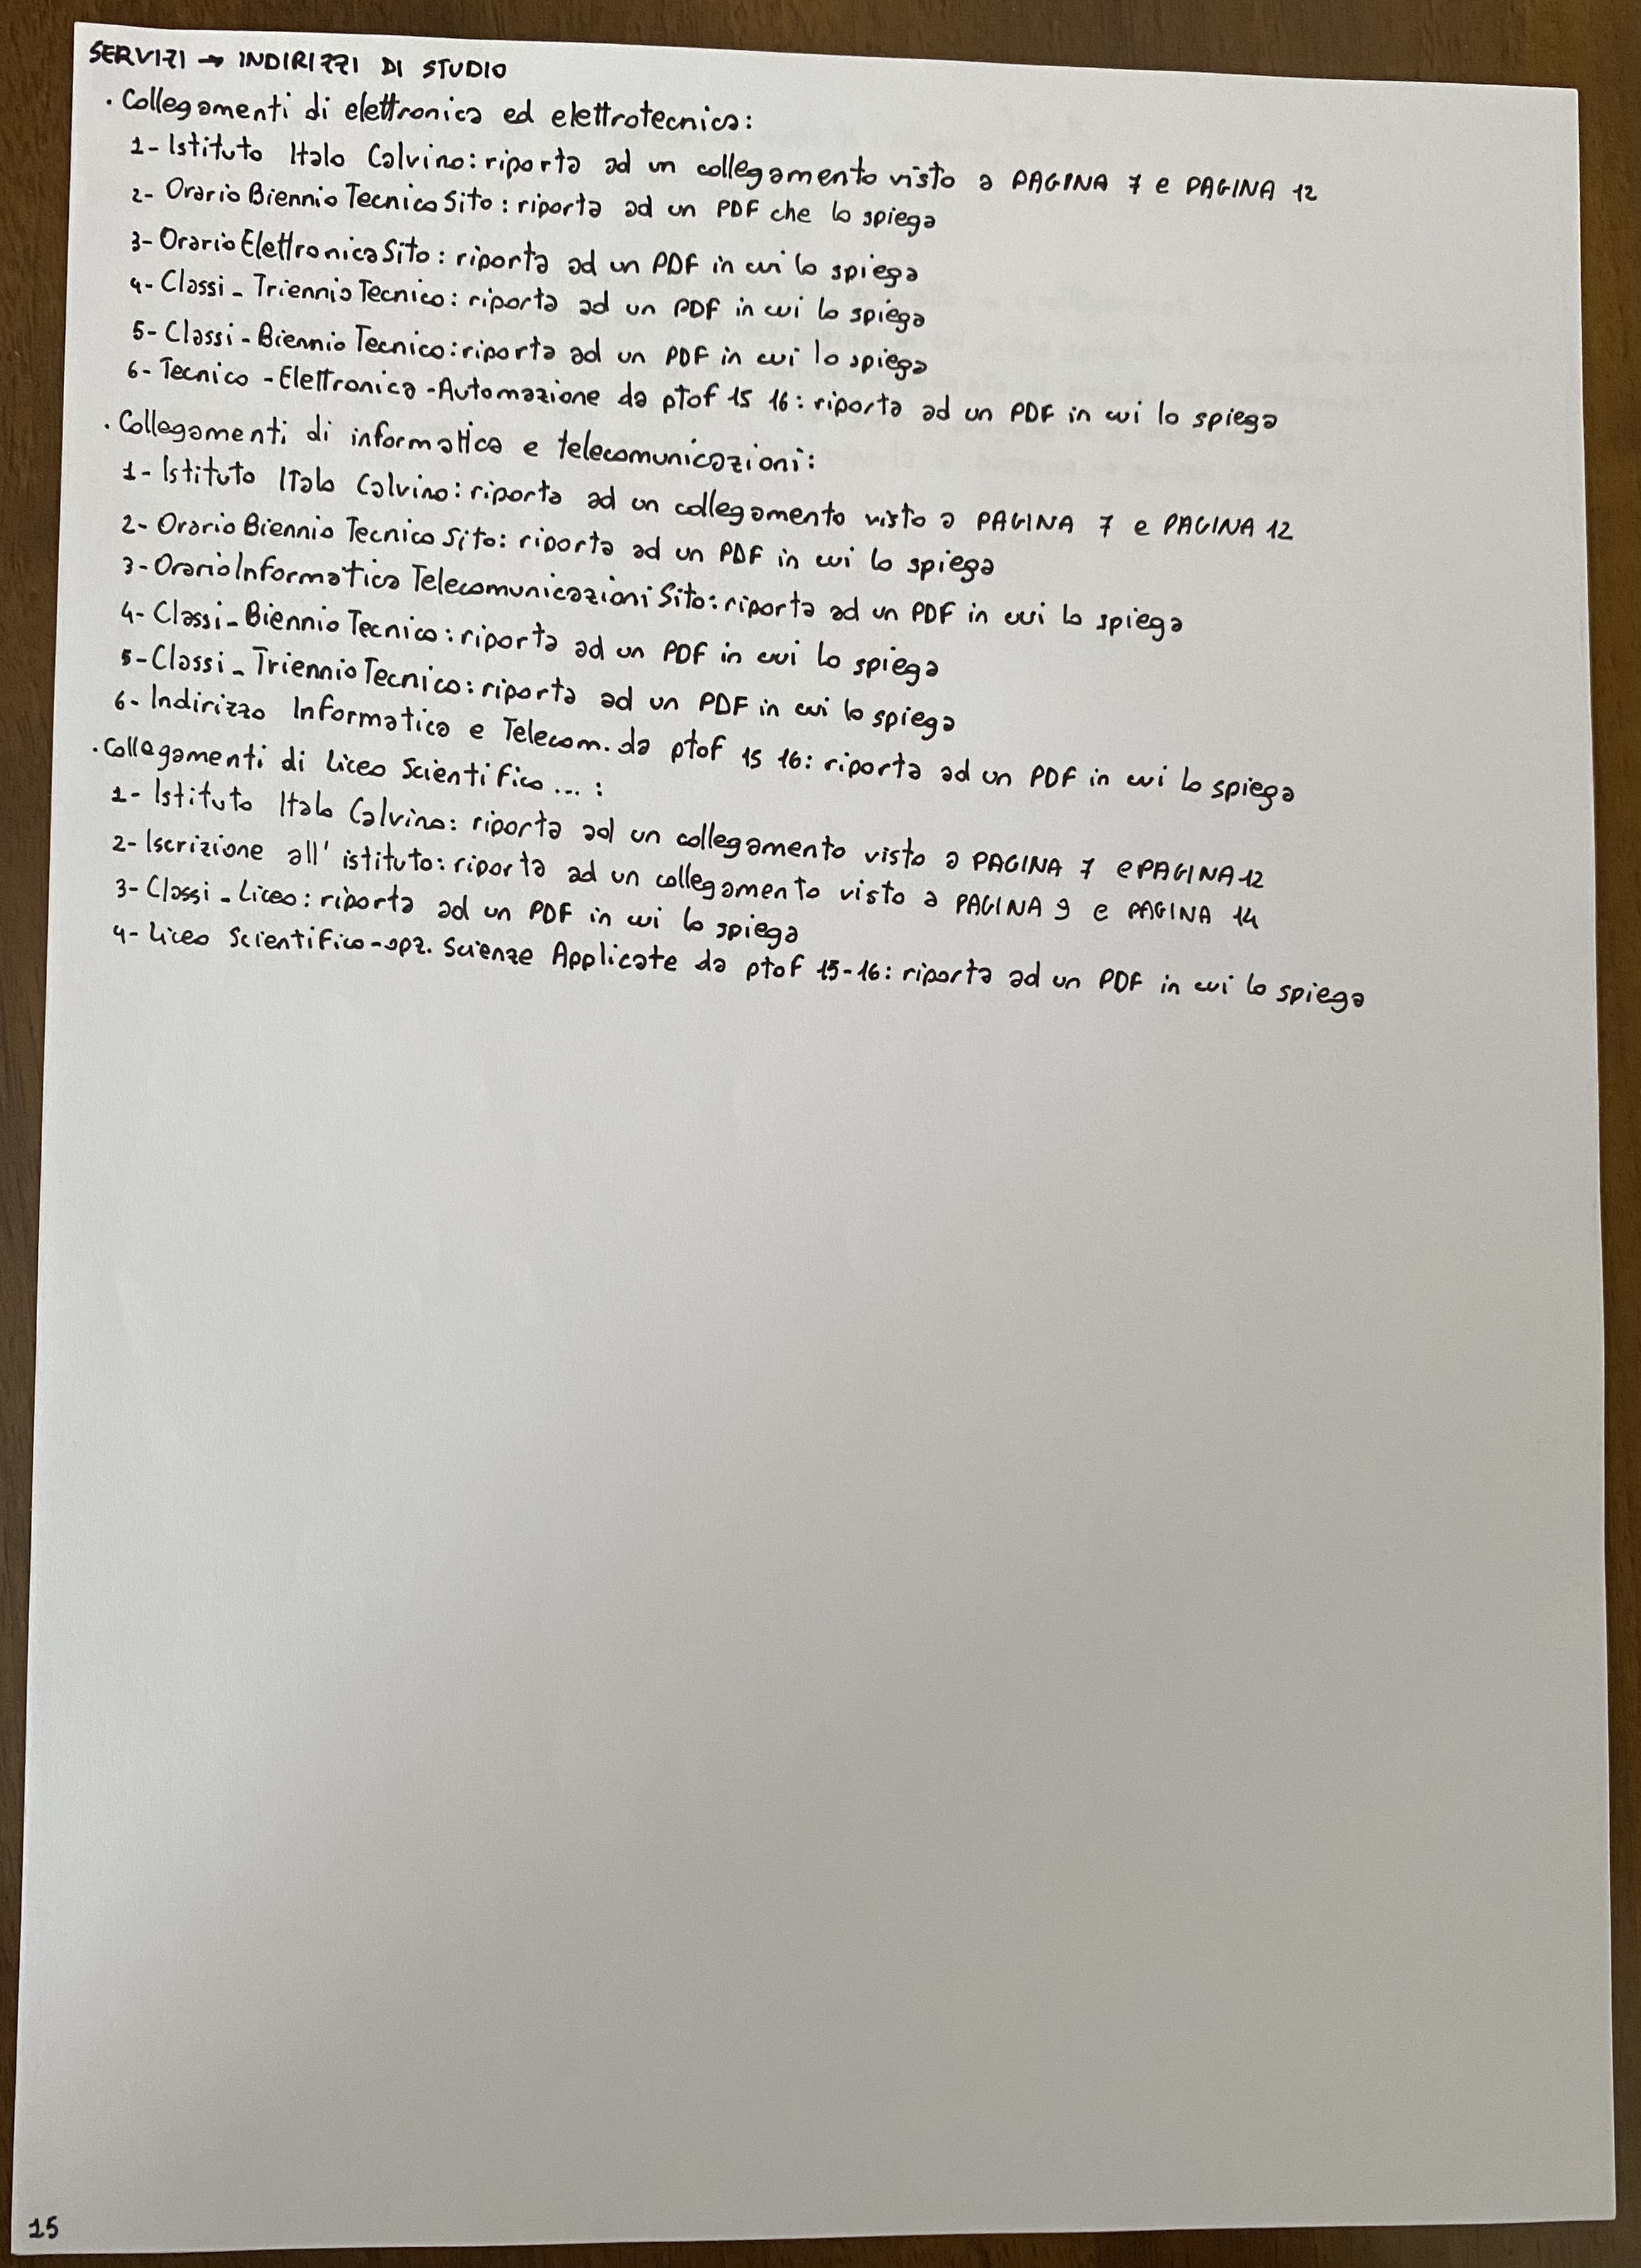 SERVIZI → INDIRIZZI DI STUDIO
· Collegamenti di elettronica ed elettrotecnica:
1- Istituto Italo Calvino: riporta ad un collegamento visto a PAGINA 7 e PAGINA 12
2- Orario Biennio Tecnico Sito: riporta ad un PDF che lo spiega
3- Orario Elettronica Sito: riporta ad un PDF in cui lo spiega
4- Classi_Triennio Tecnico: riporta ad un PDF in cui lo spiega
5- Classi-Biennio Tecnico: riporta ad un PDF in cui lo spiega
6- Tecnico -Elettronica -Automazione da ptof 15 16: riporta ad un PDF in cui lo spiega
· Collegamenti di informatica e telecomunicazioni:
1- Istituto Italo Calvino: riporta ad un collegamento visto a PAGINA 7 e PAGINA 12
2- Orario Biennio Tecnico Sito: riporta ad un PDF in cui lo spiega
3- Orario Informatica Telecomunicazioni Sito: riporta ad un PDF in cui lo spiega
4- Classi-Biennio Tecnico: riporta ad un PDF in cui lo spiega
5- Classi_Triennio Tecnico: riporta ad un PDF in cui lo spiega
6- Indirizzo Informatica e Telecom. da ptof 15 16: riporta ad un PDF in cui lo spiega
· Collegamenti di Liceo Scientifico ... :
1- Istituto Italo Calvino: riporta ad un collegamento visto a PAGINA 7 e PAGINA 12
2- Iscrizione all'istituto: riporta ad un collegamento visto a PAGINA 9 e PAGINA 14
3- Classi_Liceo: riporta ad un PDF in cui lo spiega
4- Liceo Scientifico-opz. Scienze Applicate da ptof 15-16: riporta ad un PDF in cui lo spiega
15